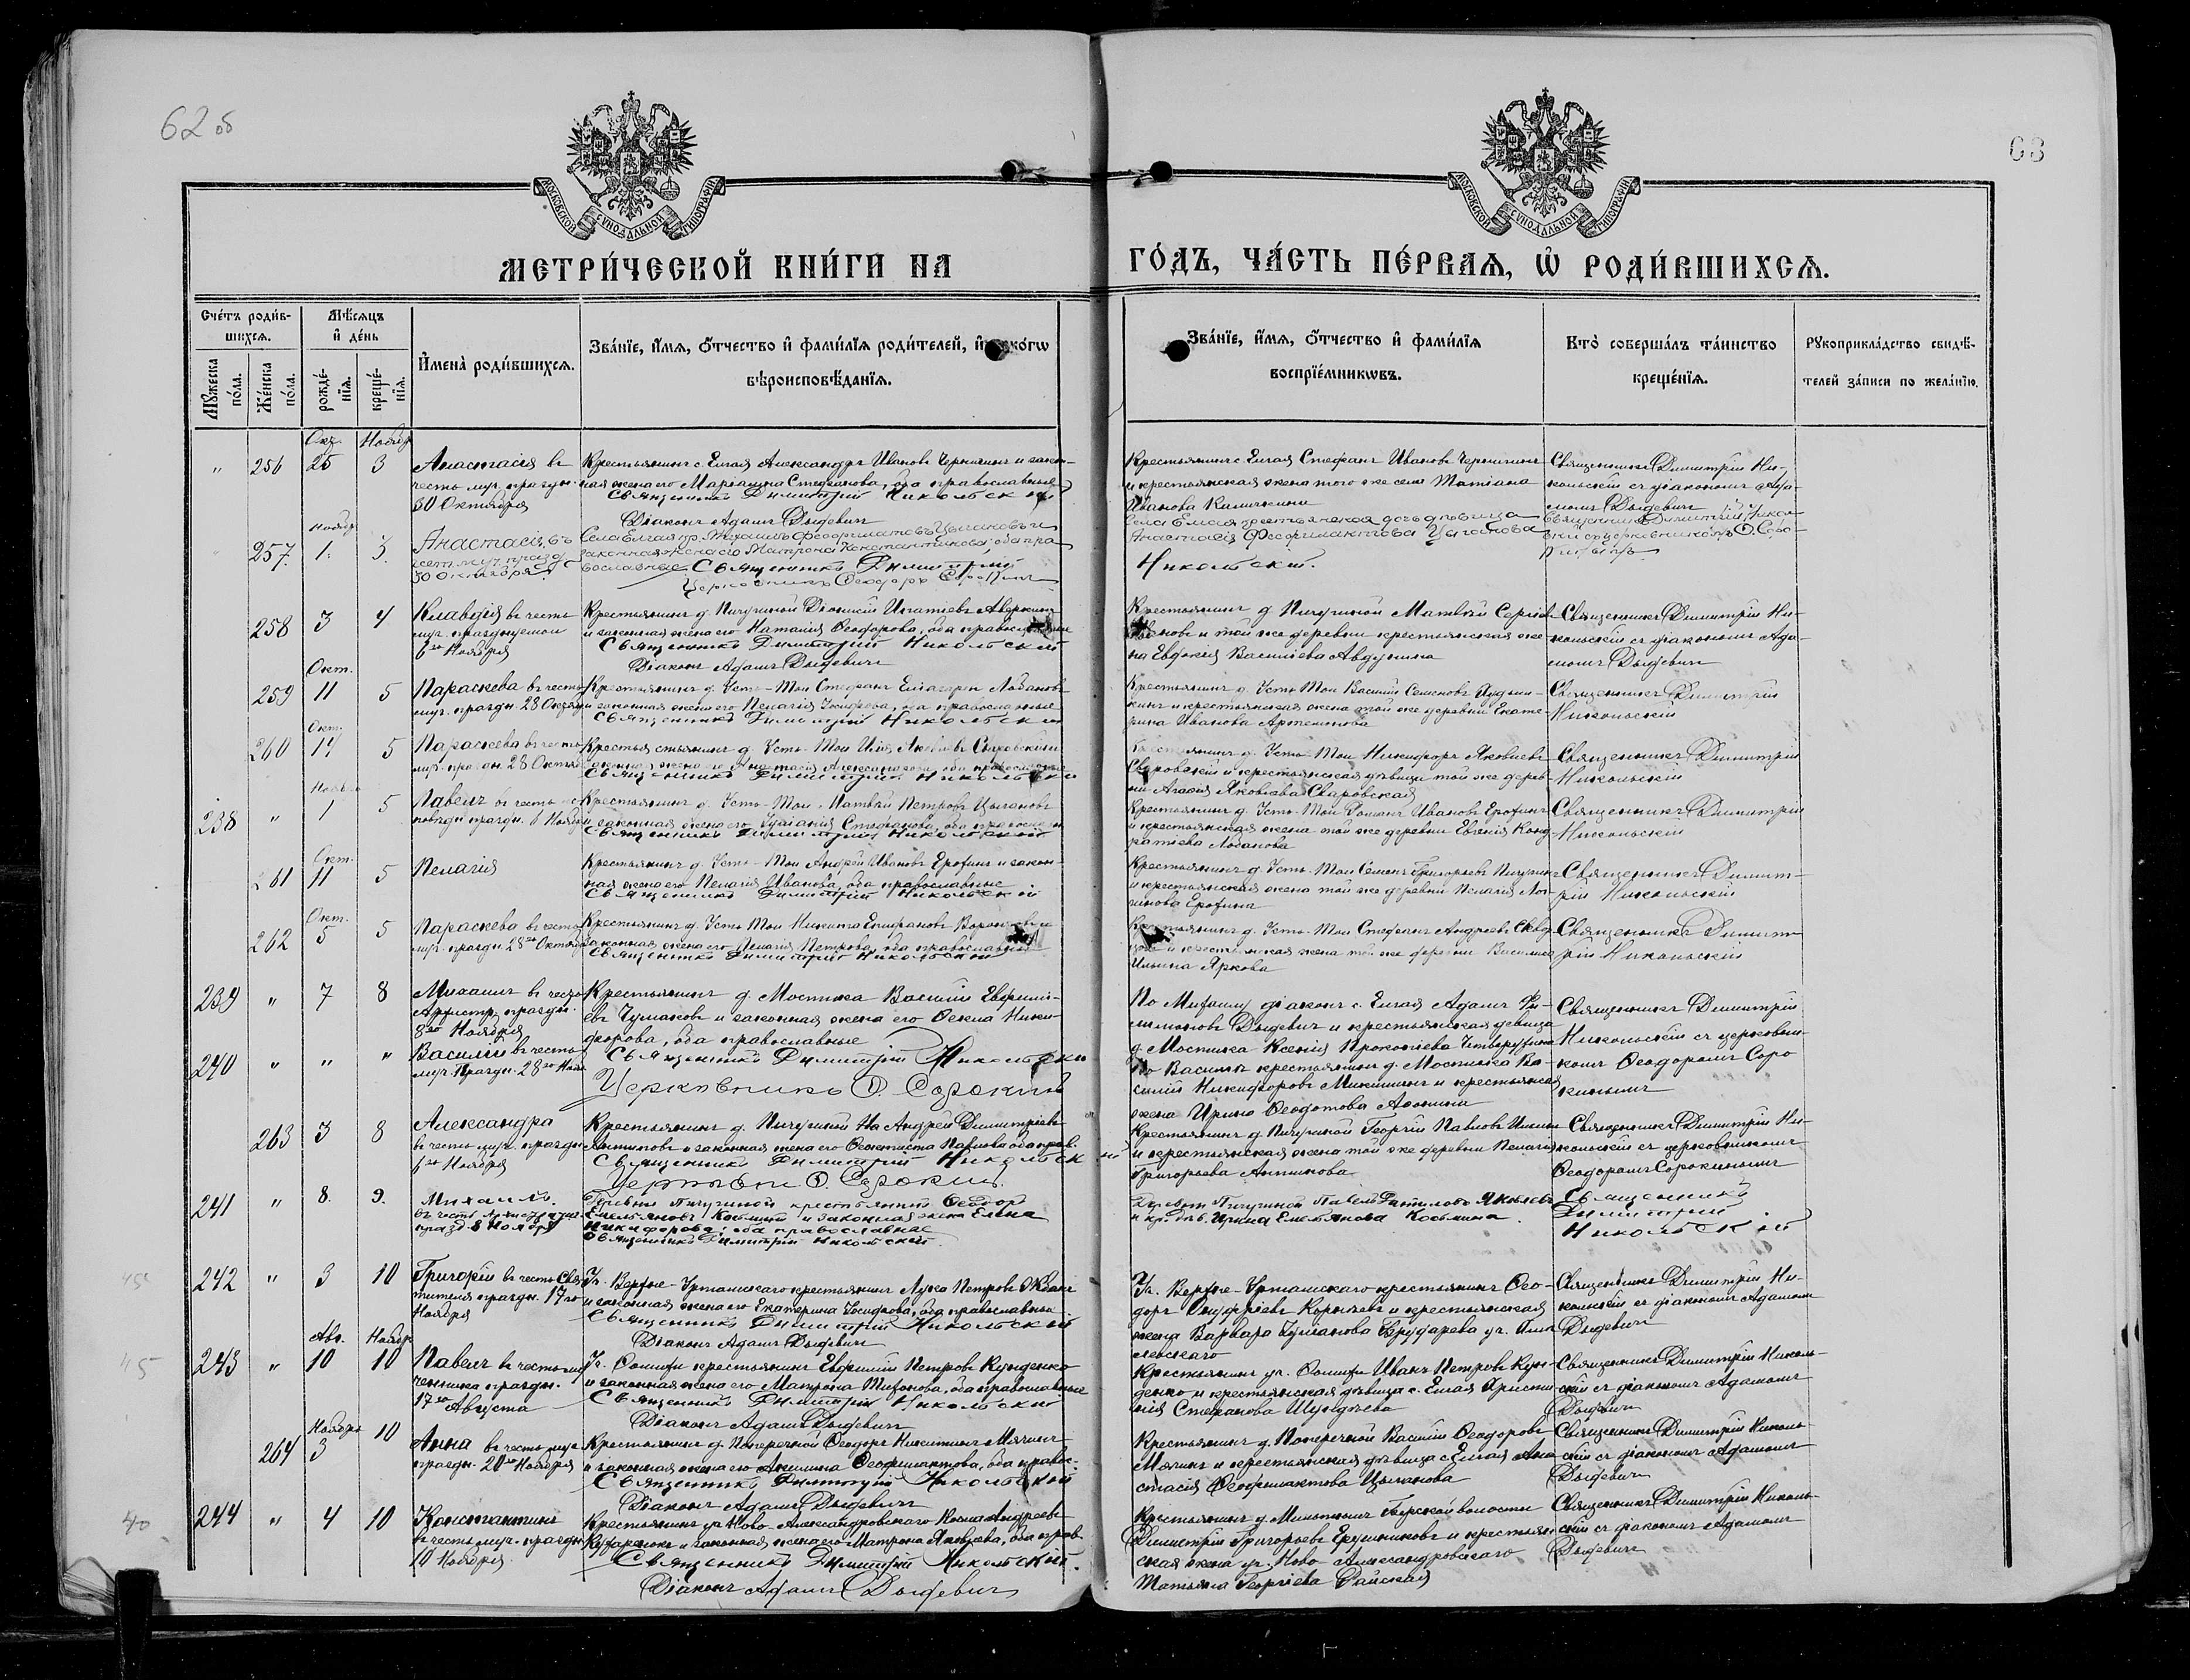 62 об
63
МОСКОВСКОЙ СѴНОДАЛЬНОЙ ТИПОГРАФІИ
МОСКОВСКОЙ СѴНОДАЛЬНОЙ ТИПОГРАФІИ
МЕТРИ́ЧЕСКОЙ КНИ́ГИ НА
ГО́ДЪ, ЧА́СТЬ ПЕ́РВАѦ, Ѡ РОДИ́ВШИХСѦ.
Сче́тъ роди́в-
шихсѧ.
Мꙋжеска по́ла.
Же́нска по́ла.
Мѣ́сѧцъ
и де́нь
рожде́-
нїѧ.
креще́-
нїѧ.
Имена̀ роди́вшихсѧ.
Зва́нїе, и́мѧ, о́тчество и фами́лїѧ роди́телей, и
вѣроисповѣ́данїѧ.
Зва́нїе, и́мѧ, о́тчество и фами́лїѧ
воспрїе́мникѡвъ.
Кто̀ соверша́лъ та́инство
креще́нїѧ.
Рꙋкоприкла́дство свидѣ́-
телей за́писи по жела́нїю.
Окт. Ноябр.
" 256 25 3
Анастасія въ
честь муч. праздн.
30 Октября
Крестьянинъ с. Елгая Александръ Ивановъ Чернигинъ и закон-
ная жена его Маріанна Стефанова, оба православные
Священникъ Димитрій Никольскій
Діаконъ Адамъ Дыдевич
Крестьянинъ с. Елгая Стефанъ Ивановъ Чернигинъ
и крестьянская жена того же села Татіана
Иванова Калинкина
Священникъ Димитрій Ни-
кольскій съ діакономъ Ада-
момъ Дыдевич
Ноябр.
257. 1. 3.
Анастасія, въ
чест. муч. празд.
30 Октября.
Села Елгая кр. Михаилъ Феофилактовъ Цыгановъ и
законная жена его Матрона Константинова, оба пра-
вославные Священникъ Димитрій
Никольскій.
Села Елгая крестьянская дочь дѣвица
Анастасія Феофилактова Цыганова
258 3 4
Клавдія въ честь
муч. празднуемой
6го Ноября
Крестьянинъ д. Пичугиной Діонисій Игнатіевъ Аверкинъ
и законная жена его Наталія Ѳеодорова, оба православные
Священникъ Димитрій Никольскій
Діаконъ Адамъ Дыдевич
Крестьянинъ д. Пичугиной Матвѣй Сергіевъ
и той же деревни крестьянская же-
на Евдокія Василіева Авдунина
Священникъ Димитрій Ни-
кольскій съ діакономъ Ада-
момъ Дыдевич
Окт.
259 11 5
Параскева въ честь
муч. праздн. 28 Октября
Крестьянинъ д. Усть-Тои Стефанъ Лобановъ
и законная жена его Пелагія Іосифова, оба православные
Священникъ Димитрій Никольскій
Крестьянинъ д. Усть Тои Василій Семеновъ
и крестьянская жена той же деревни Екате-
рина Иванова Артемонова
Священникъ Димитрій
Никольскій
Окт.
260 14 5
Параскева въ честь
муч. праздн. 28 Октября
д. Усть-Тои Илія Яковлевъ
жена его Анастасія Александрова, оба православные
Священникъ Димитрій Никольскій
д. Усть Тои Никифоръ Яковлевъ
и крестьянская дѣвица той же дерев-
ни Агафія Яковлева
Священникъ Димитрій
Никольскій
Ноября
238 " 1 5
Павелъ въ честь ис-
повѣдн. праздн. 6 Ноября
Крестьянинъ д. Усть-Тои Матвѣй Петровъ Цыгановъ
и законная жена его Іуліанія Стефанова, оба православн.
Священникъ Димитрій Никольскій
Крестьянинъ д. Усть-Тои Романъ Ивановъ Ерофинъ
и крестьянская жена той же деревни Евгенія Конд-
ратіева Лобанова
Священникъ Димитрій
Никольскій
Окт.
261 11 5
Пелагія
Крестьянинъ д. Усть-Тои Андрей Ивановъ Ерофинъ и закон-
ная жена его Пелагія Иванова, оба православные
Священникъ Димитрій Никольскій
Крестьянинъ д. Усть-Тои Семенъ Григорьевъ Пичугинъ
и крестьянская жена той же деревни Пелагія Лон-
гинова Ерофина
Священникъ Димит-
рій Никольскій
Окт.
262 5 5
Параскева въ честь
муч. праздн. 28го Октября
Крестьянинъ д. Усть Тои Никита Епифановъ
законная жена его Пелагія Петрова, оба православные
Священникъ Димитрій Никольскій
Крестьянинъ д. Усть-Тои Стефанъ Андреевъ
и крестьянская жена той же деревни Василиса
Ильина Яркова
Священникъ Димит-
рій Никольскій
239 " 7 8
Михаилъ въ честь
Архистр. праздн.
8го Ноября
Крестьянинъ д. Мостика Василій Евфимі-
евъ Чумаковъ и законная жена его Ѳекла Ники-
форова, оба православные
240 " " "
Василій въ честь
муч. праздн. 28го Нояб.
Священникъ Димитрій Никольскій
Церковникъ Ѳ. Сорокинъ
По Михаилу діаконъ с. Елгая Адамъ Фи-
лимоновъ Дыдевич и крестьянская дѣвица
д. Мостика Ксенія Прокопіева
По Василію крестьянинъ д. Мостика Ва-
силій Никифоровъ Микишинъ и крестьянская
жена Ирина Ѳеодотова Афонина
Священникъ Димитрій
Никольскій съ церковни-
комъ Ѳеодоромъ Соро
кинымъ
263 3 8
Александра
въ честь муч. праздн.
6го Ноября
Крестьянинъ д. Пичугиной Андрей Димитріевъ
Антиповъ и законная жена его Ѳеоктиста Павлова оба прав.
Священникъ Димитрій Никольскій
Ѳ. Сорокинъ.
Крестьянинъ д. Пичугиной Георгій Павловъ
и крестьянская жена той же деревни Пелагія
Григорьева Антипова
Священникъ Димитрій Ни-
кольскій съ церковникомъ
Ѳеодоромъ Сорокинымъ
241 " 8. 9.
Михаилъ.
въ честь Архистратига
празд. 8 Ноября
Деревни Пичугиной крестьянинъ Ѳеодоръ
Емельяновъ Косьминъ и законная жена Елена
Никифорова, оба православные
Священникъ Димитрій Никольскій.
Деревни Пичугиной Павелъ Яковлевъ
и Ирина Емельянова Косьмина.
Священникъ
Димитрій
Никольскій
242 " 3 10
Григорій въ честь Свя-
тителя праздн. 17го
Ноября
Уч. Верхне-Уртамскаго крестьянинъ Лука Петровъ
и законная жена его Екатерина Іосифова, оба православные.
Священникъ Димитрій Никольскій
Діаконъ Адамъ Дыдевич
Уч. Верхне-Уртамскаго крестьянинъ Ѳео-
доръ Онуфріевъ и крестьянская
жена Варвара
Священникъ Димитрій Ни-
кольскій съ діакономъ Адамомъ
Дыдевич
Авг. Ноябр.
45
243 " 10 10
Павелъ въ честь му-
ченика праздн.
17го Августа
крестьянинъ Евфимій Петровъ Кунденко
и законная жена его Матрона Тихонова, оба православные
Священникъ Димитрій Никольскій
Діаконъ Адамъ Дыдевич
Крестьянинъ уч. Иванъ Петровъ Кун-
денко и крестьянская дѣвица с. Елгая
Стефанова
Священникъ Димитрій Николь-
скій съ діакономъ Адамомъ
Дыдевич
Ноября
264 3 10
Анна въ честь муч.
праздн. 20го Ноября
Крестьянинъ д. Поперечной Ѳеодоръ Никитинъ Мячинъ
и законная жена его Акилина Ѳеофилактова, оба правос.
Священникъ Димитрій Никольскій
Діаконъ Адамъ Дыдевич
Крестьянинъ д. Поперечной Василій Ѳеодоровъ
Мячинъ и крестьянская дѣвица с. Елгая Ана-
стасія Ѳеофилактова Цыганова
Священникъ Димитрій Николь-
скій съ діакономъ Адамомъ
Дыдевич
40
244 " 4 10
Константинъ
въ честь муч. праздн.
10 Ноября.
Крестьянинъ уч. Ново-Александровскаго Косма Андреевъ
и законная жена его Матрона Яковлева, оба прав.
Священникъ Димитрій Никольскій.
Діаконъ Адамъ Дыдевич
Крестьянинъ д. волости
Димитрій Григорьевъ и крестьян-
ская жена уч. Ново Александровскаго
Татьяна Георгіева Райская
Священникъ Димитрій Николь-
скій съ діакономъ Адамомъ
Дыдевич